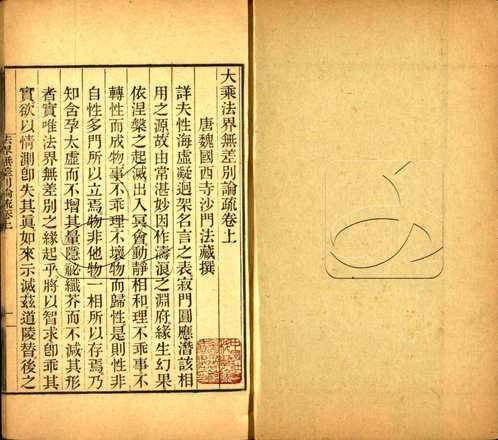 大乘法界無差別論疏卷上
唐魏國西寺沙門法藏撰
詳夫性海虛凝迥架名言之表寂門圓應潛該相
用之源故由常湛妙因作濤浪之淵府緣生幻果
依涅槃之起滅出入冥會動靜相和理不乖事不
轉性而成物事不乖理不壞物而歸性是則性非
自性多門所以立焉物非他物一相所以存焉乃
知含孕太虛而不增其量隱祕纖芥而不減其形
者實唯法界無差別之緣起乎將以智求卽乖其
實欲以情測卽失其眞如來示滅茲道陵替後之
法界無差別論疏卷上
一